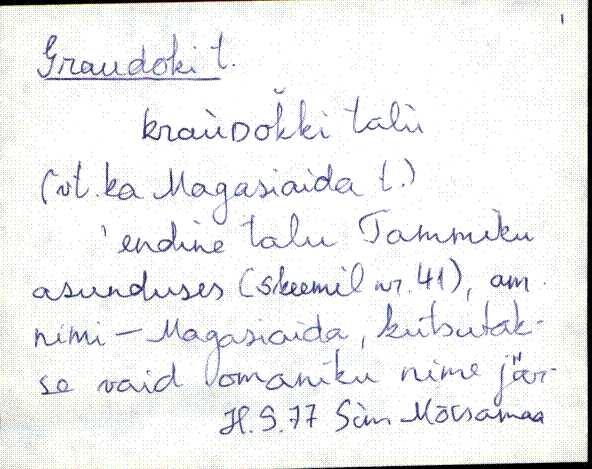 1
Graudoki t.
kraùDok̆ki talù
(vt. ka Magasiaida t.)
'endine talu Tammiku
asunduses (skeemil nr. 41), am.
nimi - Magasiaida, kutsutak-
se vaid omaniku nime jär-
H. S. 77 Sim Mõisamaa